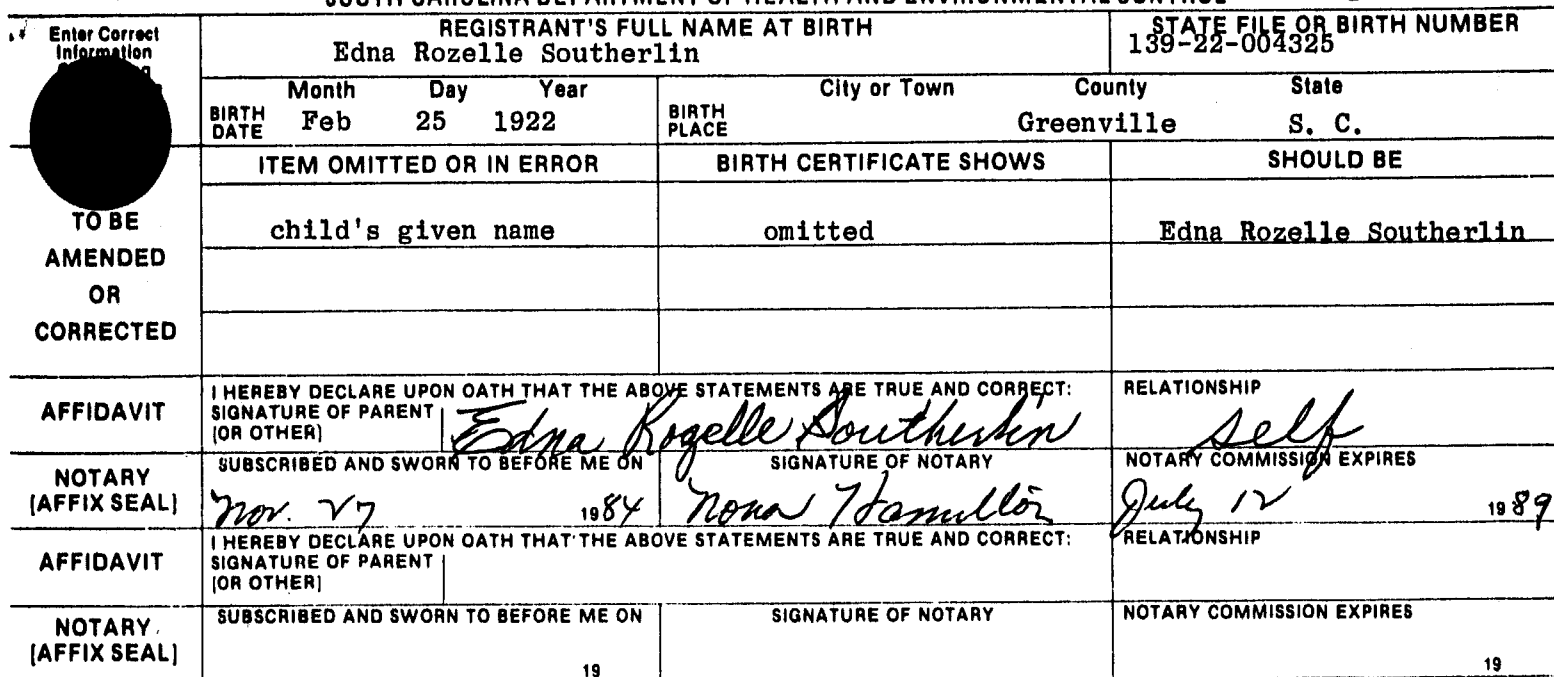 SOUTH CAROLINA DEPARTMENT OF HEALTH AND ENVIRONMENTAL CONTROL
Enter Correct
Information
REGISTRANT'S FULL NAME AT BIRTH
Edna Rozelle Southerlin
STATE FILE OR BIRTH NUMBER
139-22-004325
BIRTH DATE Month Day Year
Feb 25 1922
BIRTH PLACE City or Town County State
Greenville S. C.
TO BE
AMENDED
OR
CORRECTED
ITEM OMITTED OR IN ERROR BIRTH CERTIFICATE SHOWS SHOULD BE
child's given name omitted Edna Rozelle Southerlin
AFFIDAVIT
I HEREBY DECLARE UPON OATH THAT THE ABOVE STATEMENTS ARE TRUE AND CORRECT:
SIGNATURE OF PARENT
(OR OTHER)
Edna Rozelle Southerlin
RELATIONSHIP
self
NOTARY
(AFFIX SEAL)
SUBSCRIBED AND SWORN TO BEFORE ME ON
Nov. 27 1984
SIGNATURE OF NOTARY
Nona Hamilton
NOTARY COMMISSION EXPIRES
July 12 1989
AFFIDAVIT
I HEREBY DECLARE UPON OATH THAT THE ABOVE STATEMENTS ARE TRUE AND CORRECT:
SIGNATURE OF PARENT
(OR OTHER)
RELATIONSHIP
NOTARY
(AFFIX SEAL)
SUBSCRIBED AND SWORN TO BEFORE ME ON
19
SIGNATURE OF NOTARY
NOTARY COMMISSION EXPIRES
19